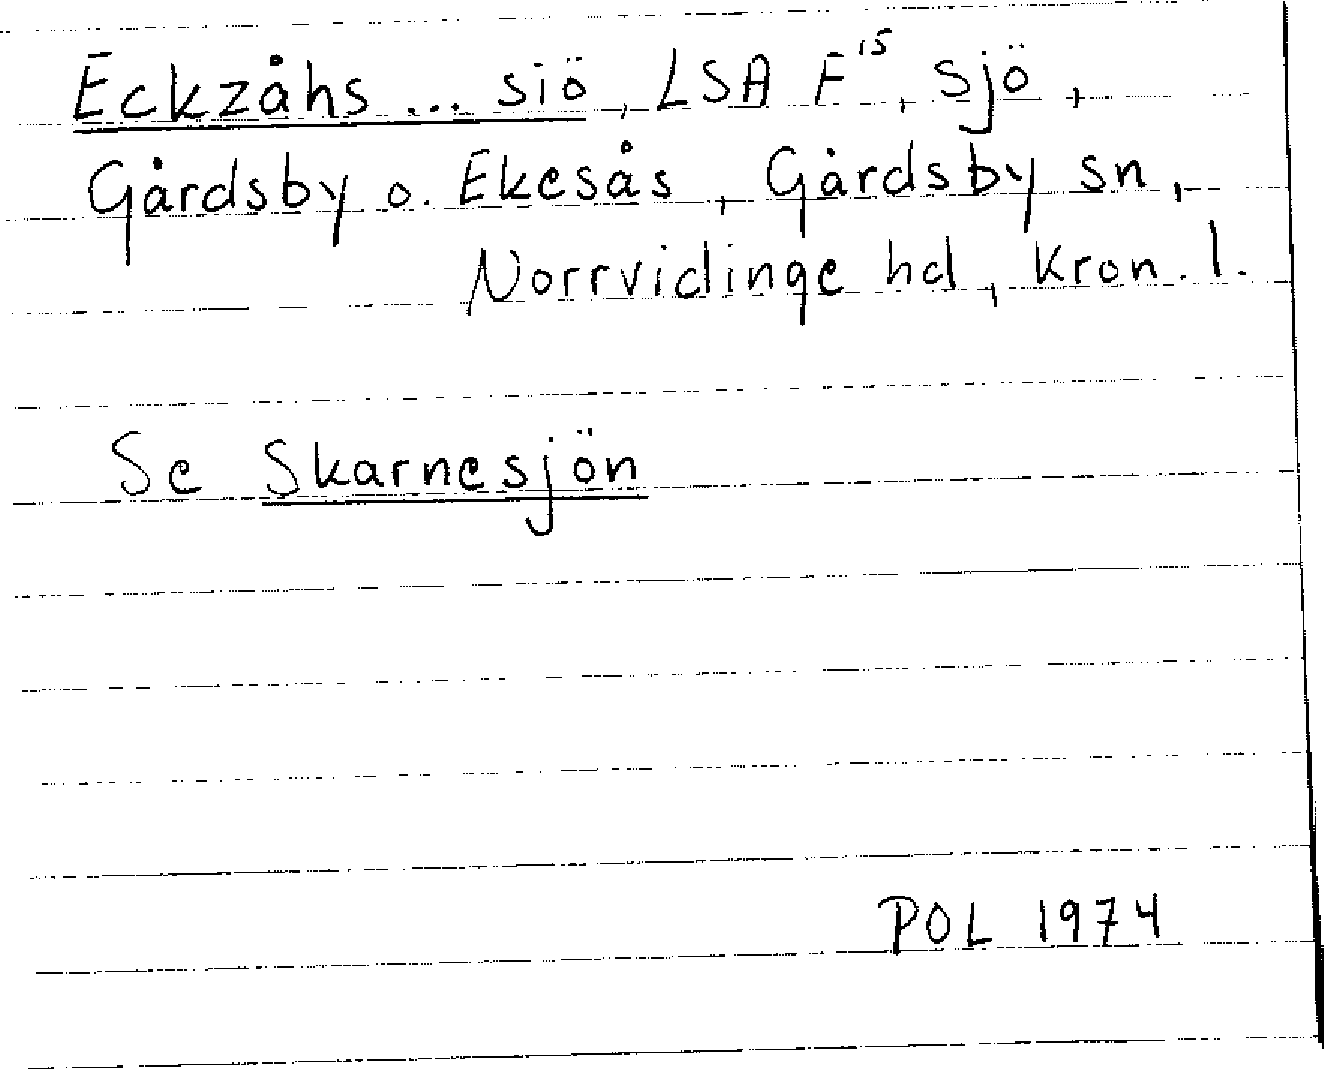 Eckzåhs ... siö, LSA F¹⁵, sjö,
Gårdsby o. Ekesås, Gårdsby sn,
Norrvidinge hd, Kron. l.
Se Skarnesjön
POL 1974